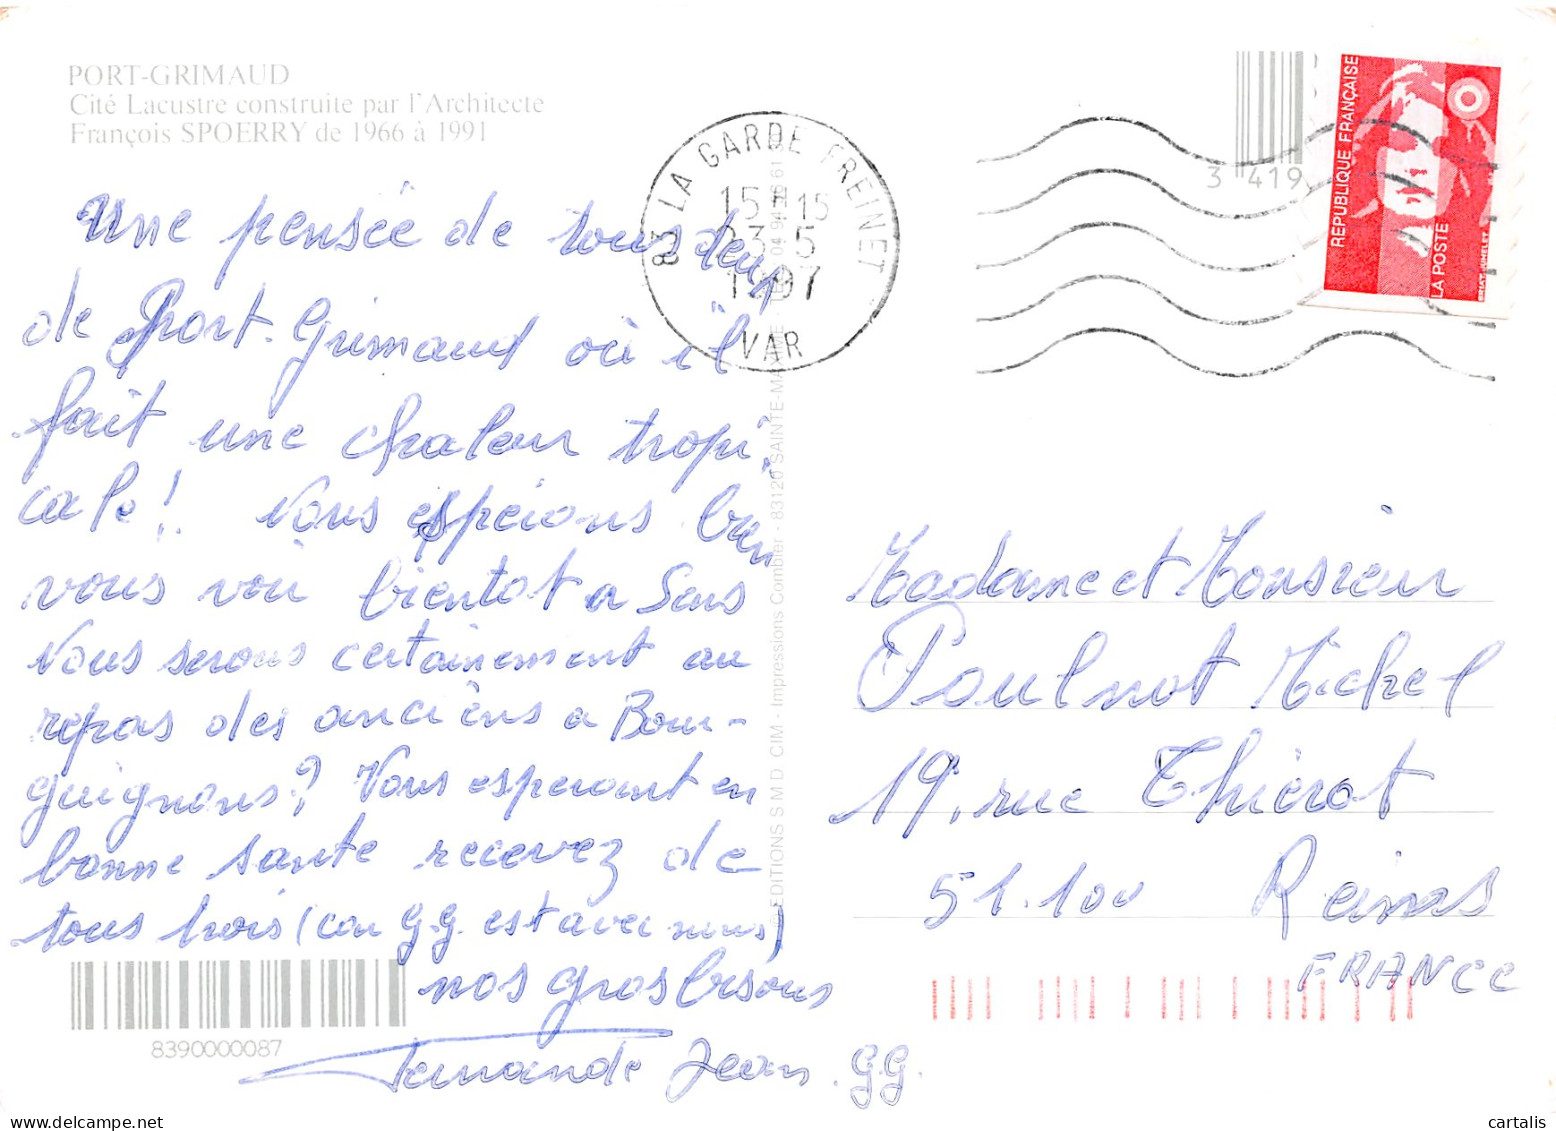 PORT-GRIMAUD
Cité Lacustre construite par l'Architecte
François SPOERRY de 1966 à 1991
Une pensée de tous deux
de Port-Grimaud où il
fait une chaleur tropi
cale! Nous espérons bien
vous voir bientot a Sens
Nous serons certainement au
repas des anciens a Bour-
guignons? Vous esperant en
bonne sante recevez de
tous trois (car G.G. est avec nous)
nos gros bisous
Fernande Jean. G.G.
8390000087
©EDITIONS S M D CIM - Impressions Combier - 83120 SAINTE-MAXIME - 04 94 61
83 LA GARDE FREINET
15H15
23-5
1997
VAR
3 419
REPUBLIQUE FRANÇAISE
LA POSTE
Madame et Monsieur
Poulnot Michel
19, rue Thiérot
51.100 Reims
FRANCE
cartalis